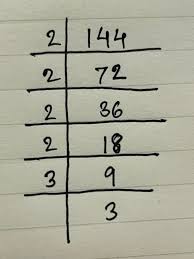 2 144
2 72
2 36
2 18
3 9
3